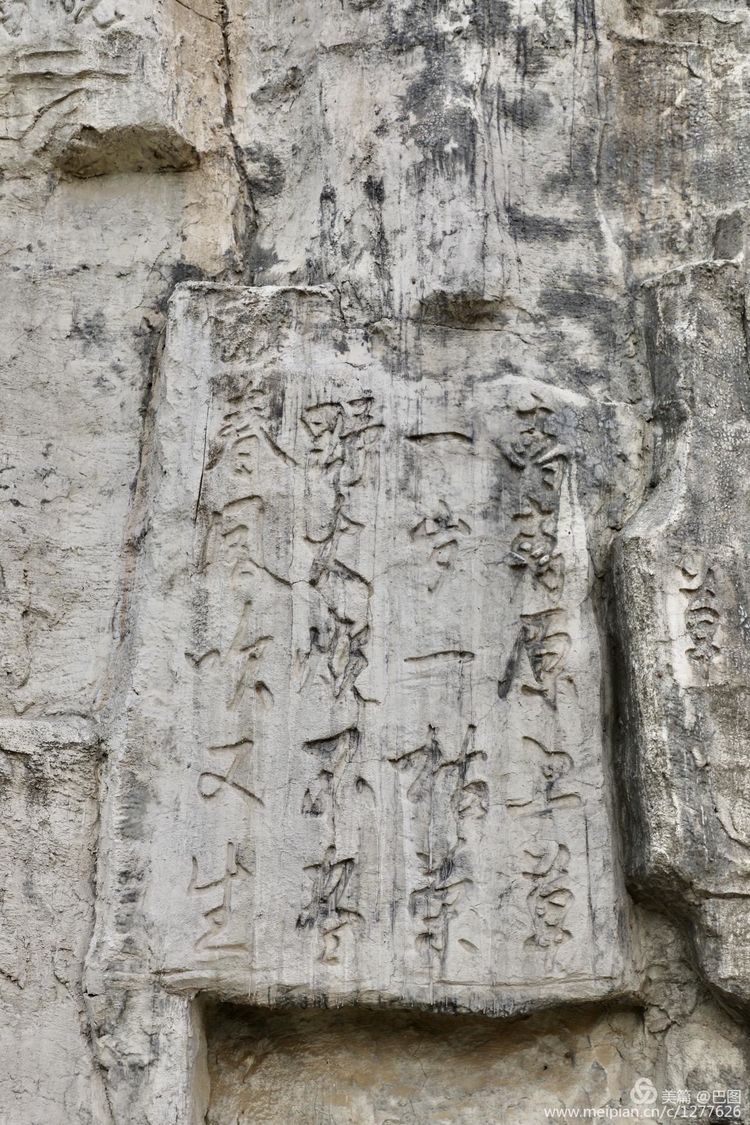 草
离离原上草
一岁一枯荣
野火燒不盡
春風吹又生
美篇 @巴图
www.meipian.cn/c/1277626